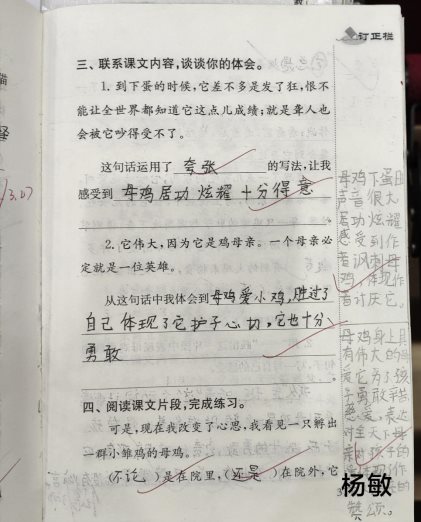 订正栏
三、联系课文内容,谈谈你的体会。
1. 到下蛋的时候,它差不多是发了狂,恨不
能让全世界都知道它这点儿成绩;就是聋人也
会被它吵得受不了。
这句话运用了 夸张 的写法,让我
感受到 母鸡居功炫耀 十分得意
2. 它伟大,因为它是鸡母亲。一个母亲必
定就是一位英雄。
从这句话中我体会到母鸡爱小鸡,胜过了
自己 体现了它护子心切,它也十分
勇敢 。
四、阅读课文片段,完成练习。
可是,现在我改变了心思,我看见一只孵出
一群小雏鸡的母鸡。
(不论)是在院里,(还是)在院外,它
母鸡下蛋时
声音很大
居功炫耀
感受到作
者讽刺母
鸡 体现作
者讨厌它。
母鸡身上具
有伟大的母
爱它为了孩
子勇敢辛苦
慈爱,表达
对全天下母
亲对孩子的
赞颂。
杨敏